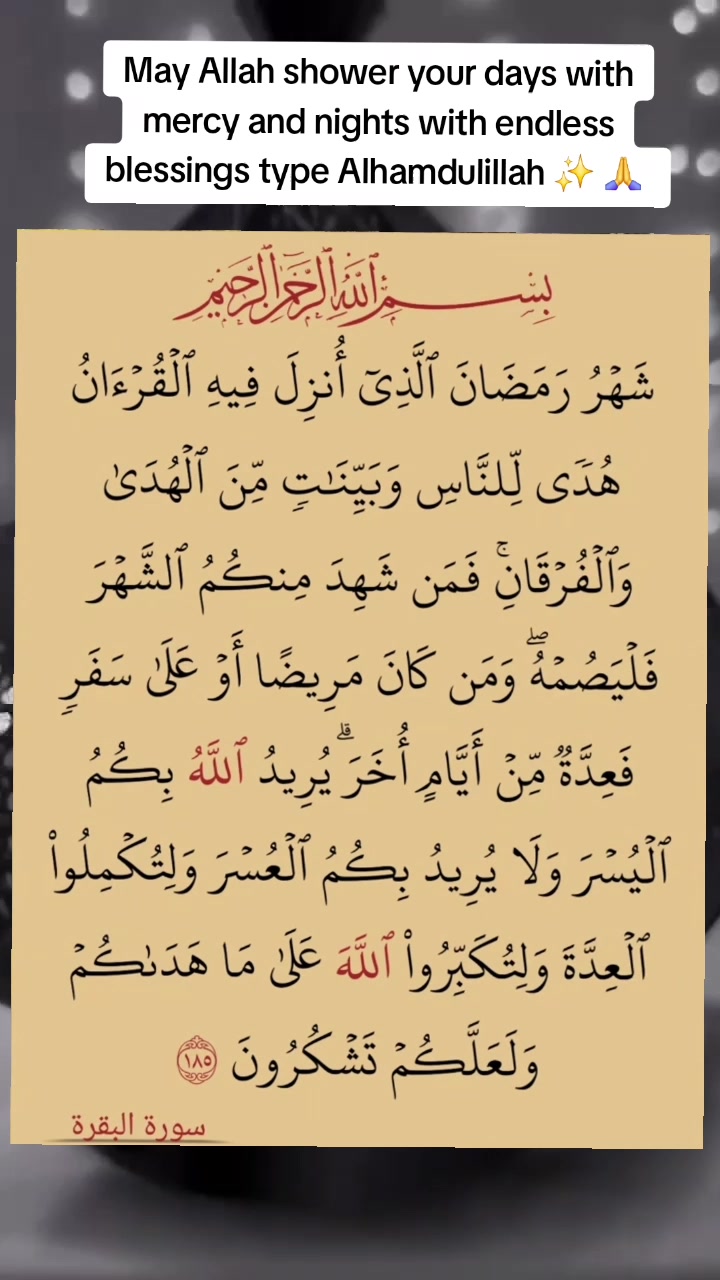 May Allah shower your days with
mercy and nights with endless
blessings type Alhamdulillah ✨ 🙏
بِسْمِ ٱللَّهِ ٱلرَّحْمَٰنِ ٱلرَّحِيمِ
شَهْرُ رَمَضَانَ ٱلَّذِىٓ أُنزِلَ فِيهِ ٱلْقُرْءَانُ
هُدًى لِّلنَّاسِ وَبَيِّنَـٰتٍ مِّنَ ٱلْهُدَىٰ
وَٱلْفُرْقَانِ ۚ فَمَن شَهِدَ مِنكُمُ ٱلشَّهْرَ
فَلْيَصُمْهُ ۖ وَمَن كَانَ مَرِيضًا أَوْ عَلَىٰ سَفَرٍ
فَعِدَّةٌ مِّنْ أَيَّامٍ أُخَرَ ۗ يُرِيدُ ٱللَّهُ بِكُمُ
ٱلْيُسْرَ وَلَا يُرِيدُ بِكُمُ ٱلْعُسْرَ وَلِتُكْمِلُوا۟
ٱلْعِدَّةَ وَلِتُكَبِّرُوا۟ ٱللَّهَ عَلَىٰ مَا هَدَىٰكُمْ
وَلَعَلَّكُمْ تَشْكُرُونَ ١٨٥
سورة البقرة